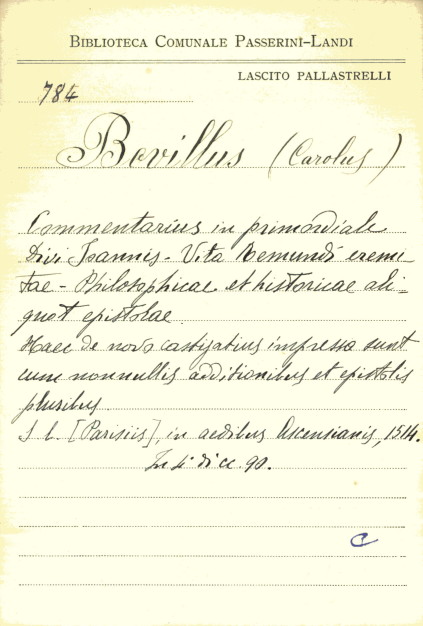 BIBLIOTECA COMUNALE PASSERINI-LANDI
LASCITO PALLASTRELLI
784
Bovillus (Carolus)
Commentarius in primordiale
Divi Joannis - Vita Remundi eremi
tae - Philosophicae et historicae ali-
quot epistolae
Haec de novo castigatius impressa sunt
cum nonnullis additionibus et epistolis
pluribus
S. l. [Parisiis], in aedibus Ascensianis, 1514.
In 4° di cc. 90.
C